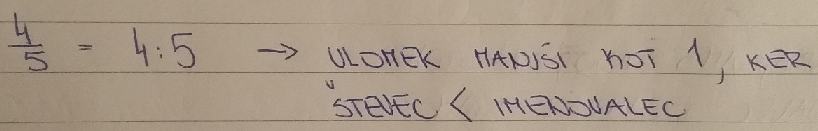 4/5 = 4:5 → ULOMEK MANJŠI KOT 1, KER
ŠTEVEC < IMENOVALEC